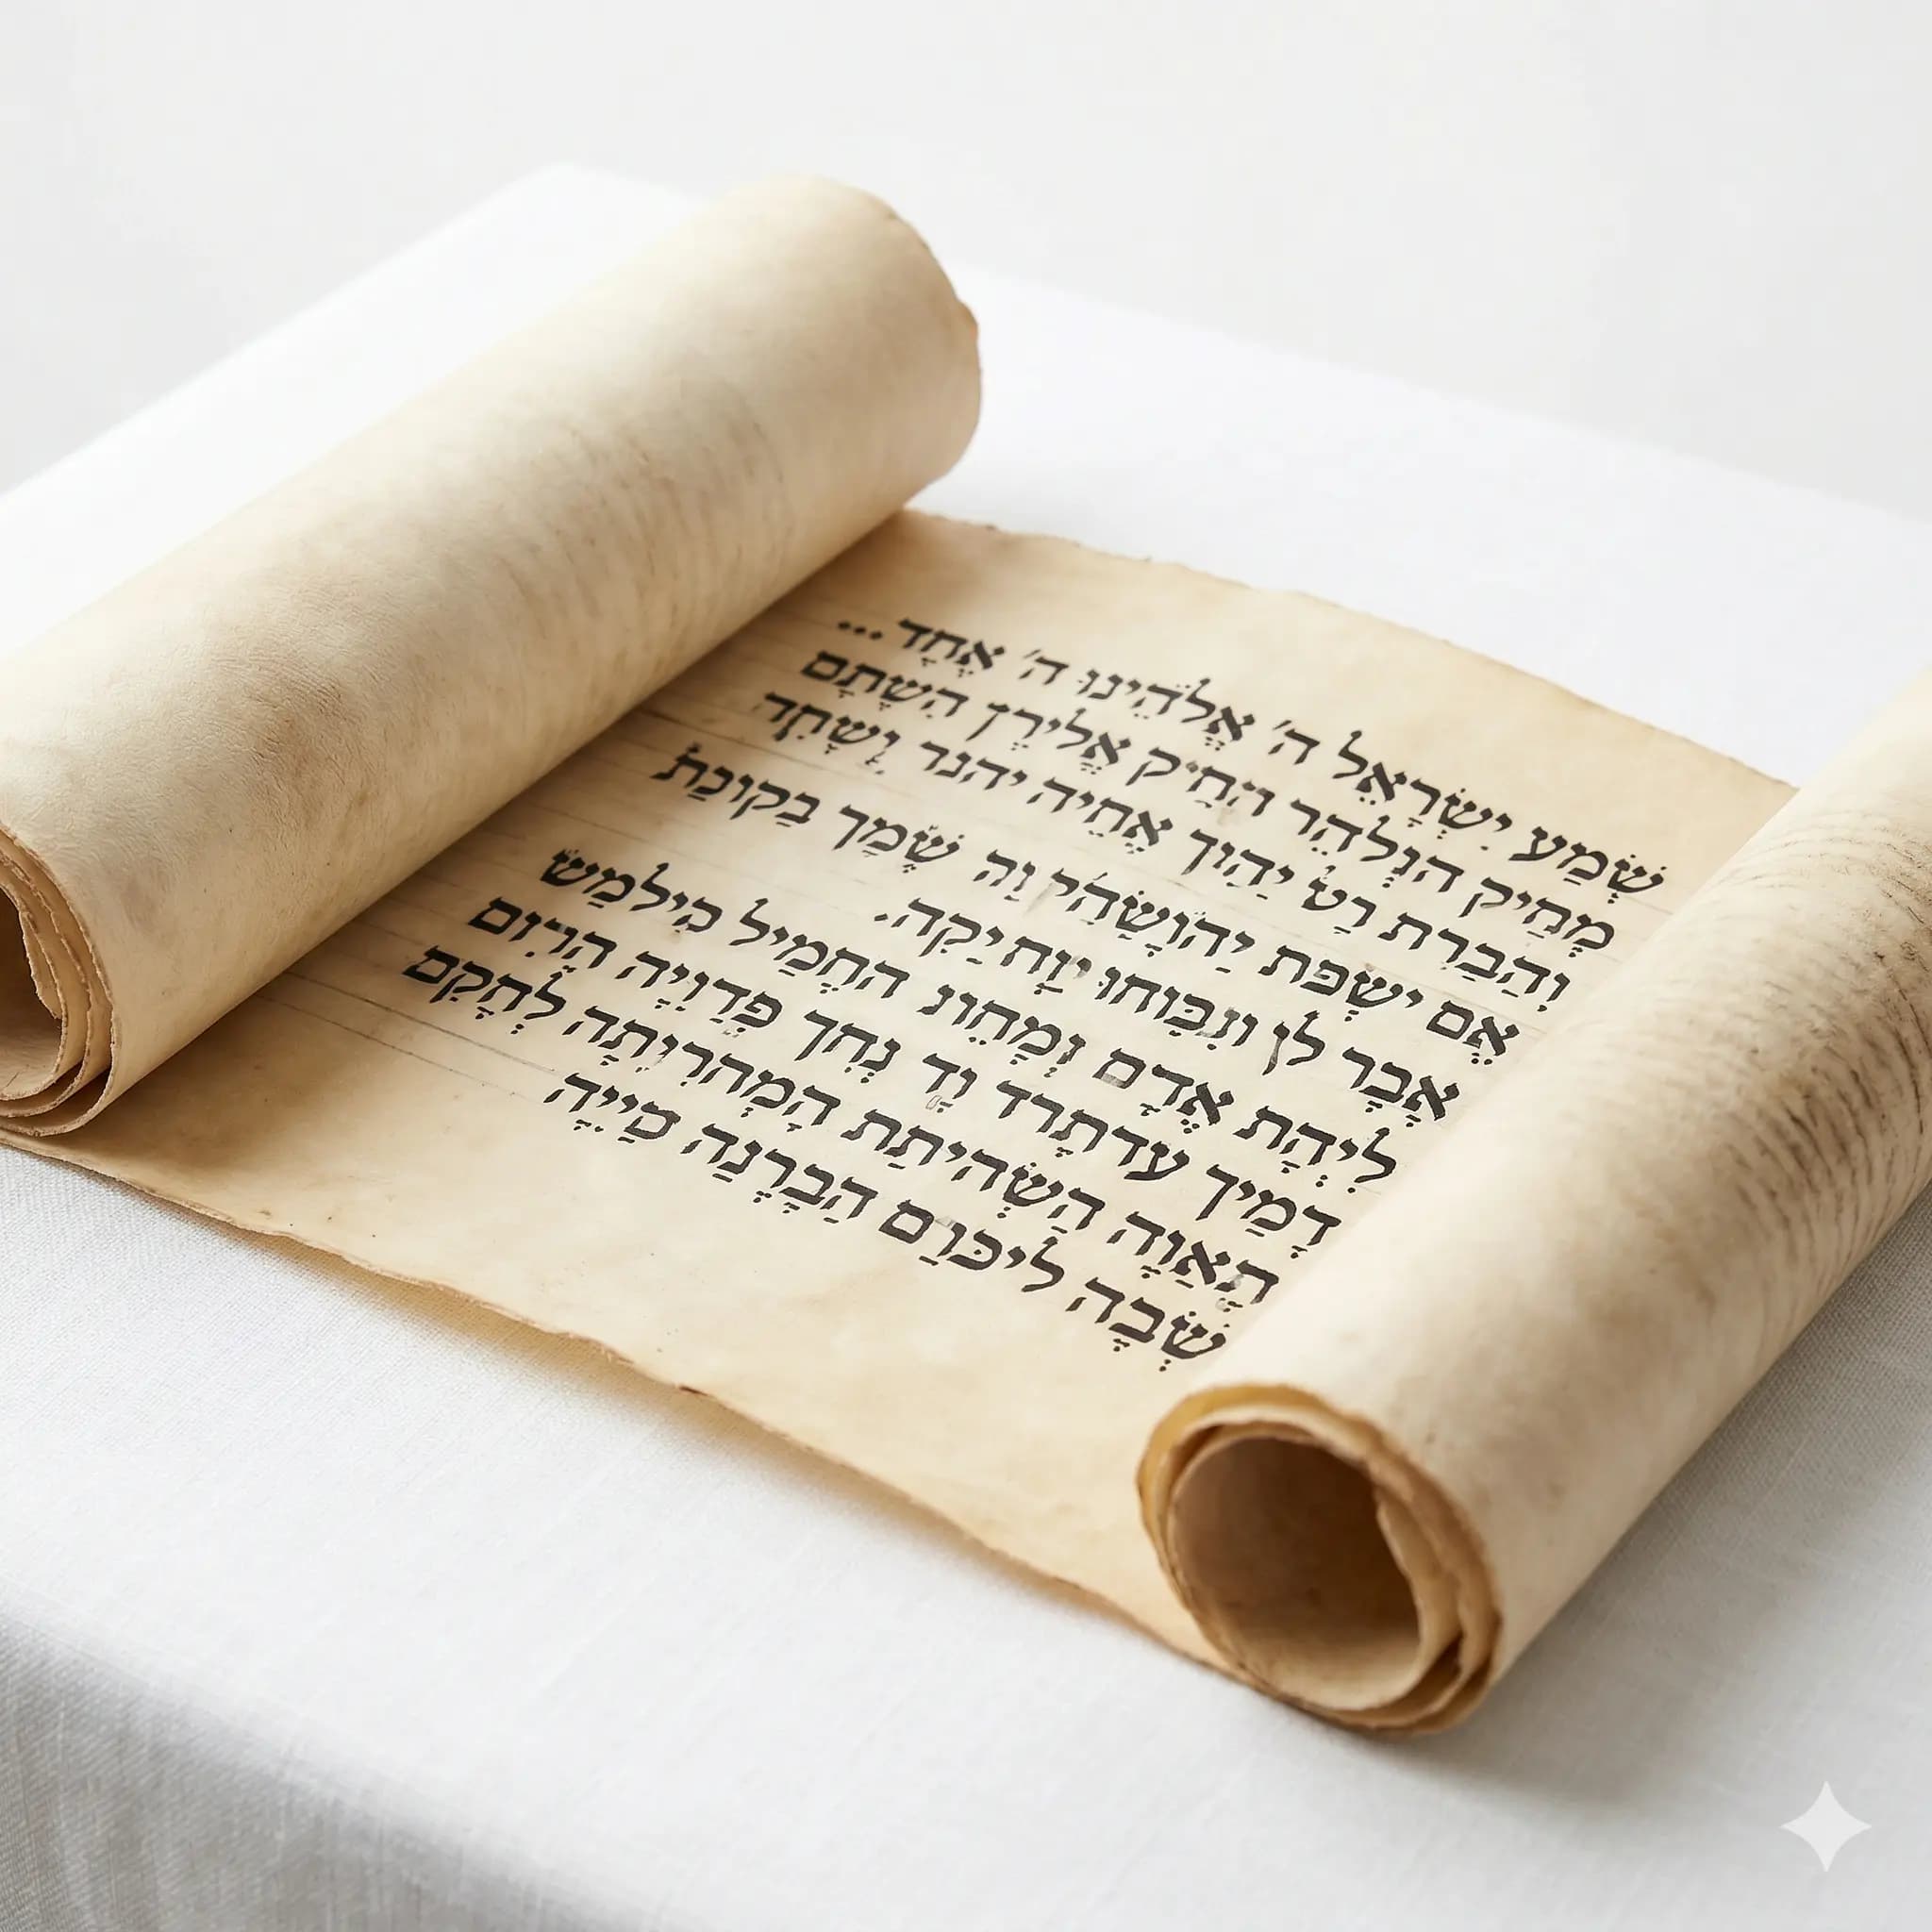 שְׁמַע יִשְׂרָאֵל ה' אֱלֹהֵינוּ ה' אֶחָד...
מְחַיִק הוְּלהֵר הִחַיק אֱלִירֶן הִשְׁתָּם
וְהַבַרִת רַט יַהַוִך אֱחֵיה יהנר וְשְׁחִד
אֶם ישְׁפת יַהוּשָׁהִי וַה שְׁמָך בַקונַת
אָבְר לן ונִבַּוחוּ יוָח יַקִה.
לִיְהָת אֱדָם וְמָחֵונ החֲמַיל מִילמַש
דְמַיך עדתָרד וָד נְחִך פְּדַוְיָה הרִוֹם
הָאַוָה הָשְׁהיתַת הָמְהרִיְתָה לְחָקִם
שְׁבָה ליכּוַם הַבְרְנַה מַיִיָה